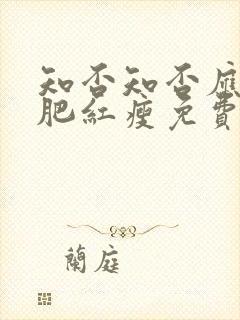 知否知否應
肥紅瘦免費
蘭庭